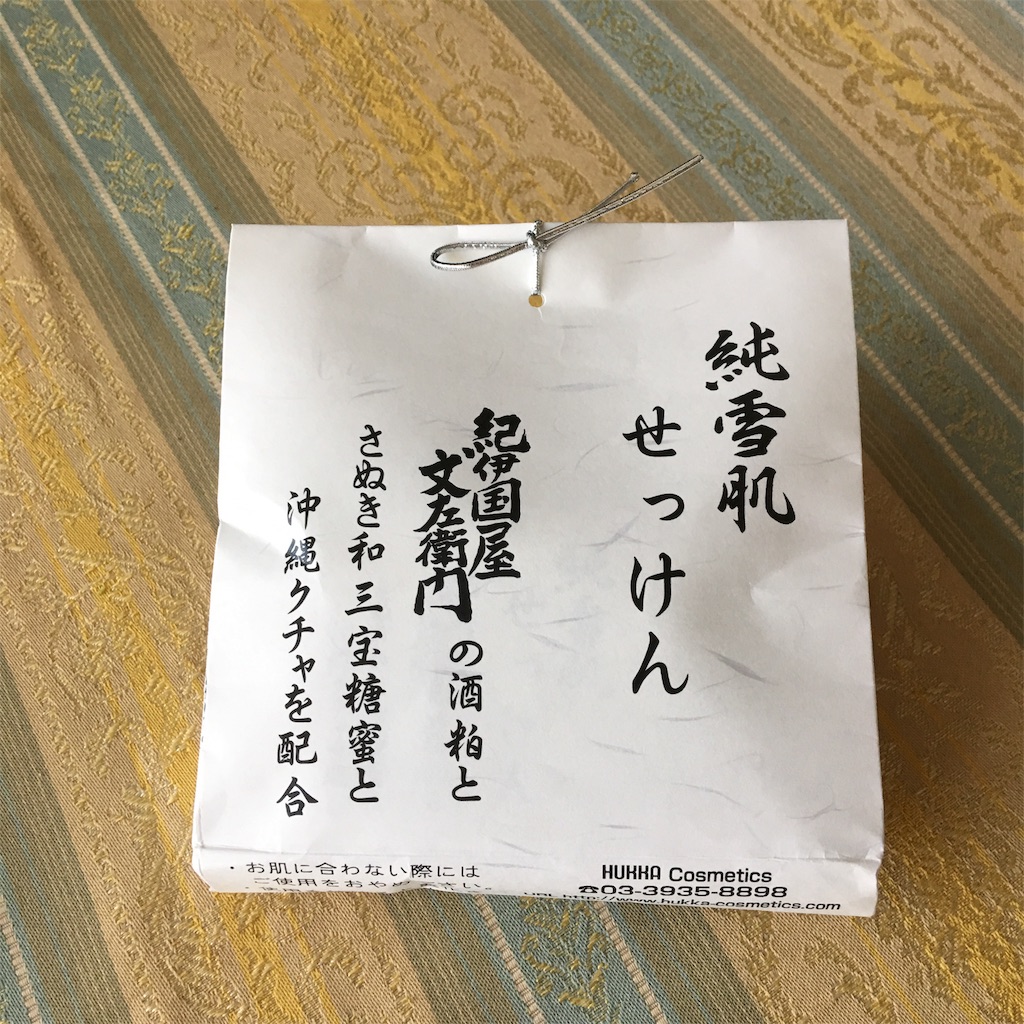 純雪肌
せっけん
紀伊国屋
文左衛門の酒粕と
さぬき和三宝糖蜜と
沖縄クチャを配合
・お肌に合わない際には
ご使用をおやめ下さい。
HUKKA Cosmetics
☎03-3935-8898
URL http://www.hukka-cosmetics.com